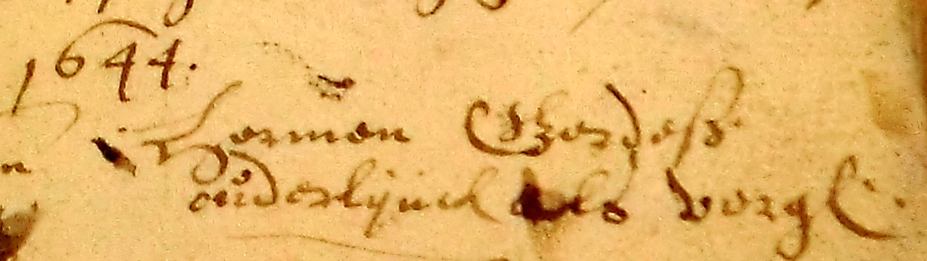 1644.
Hermen Gerdeß
oüderlijnck als vorgl.